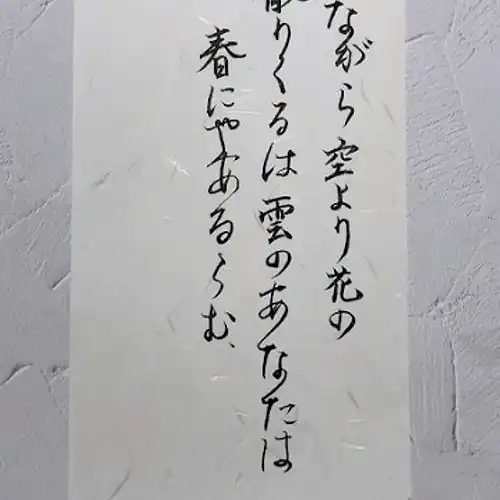 ながら空より花の
散りくるは雲のあなたは
春にやあるらむ